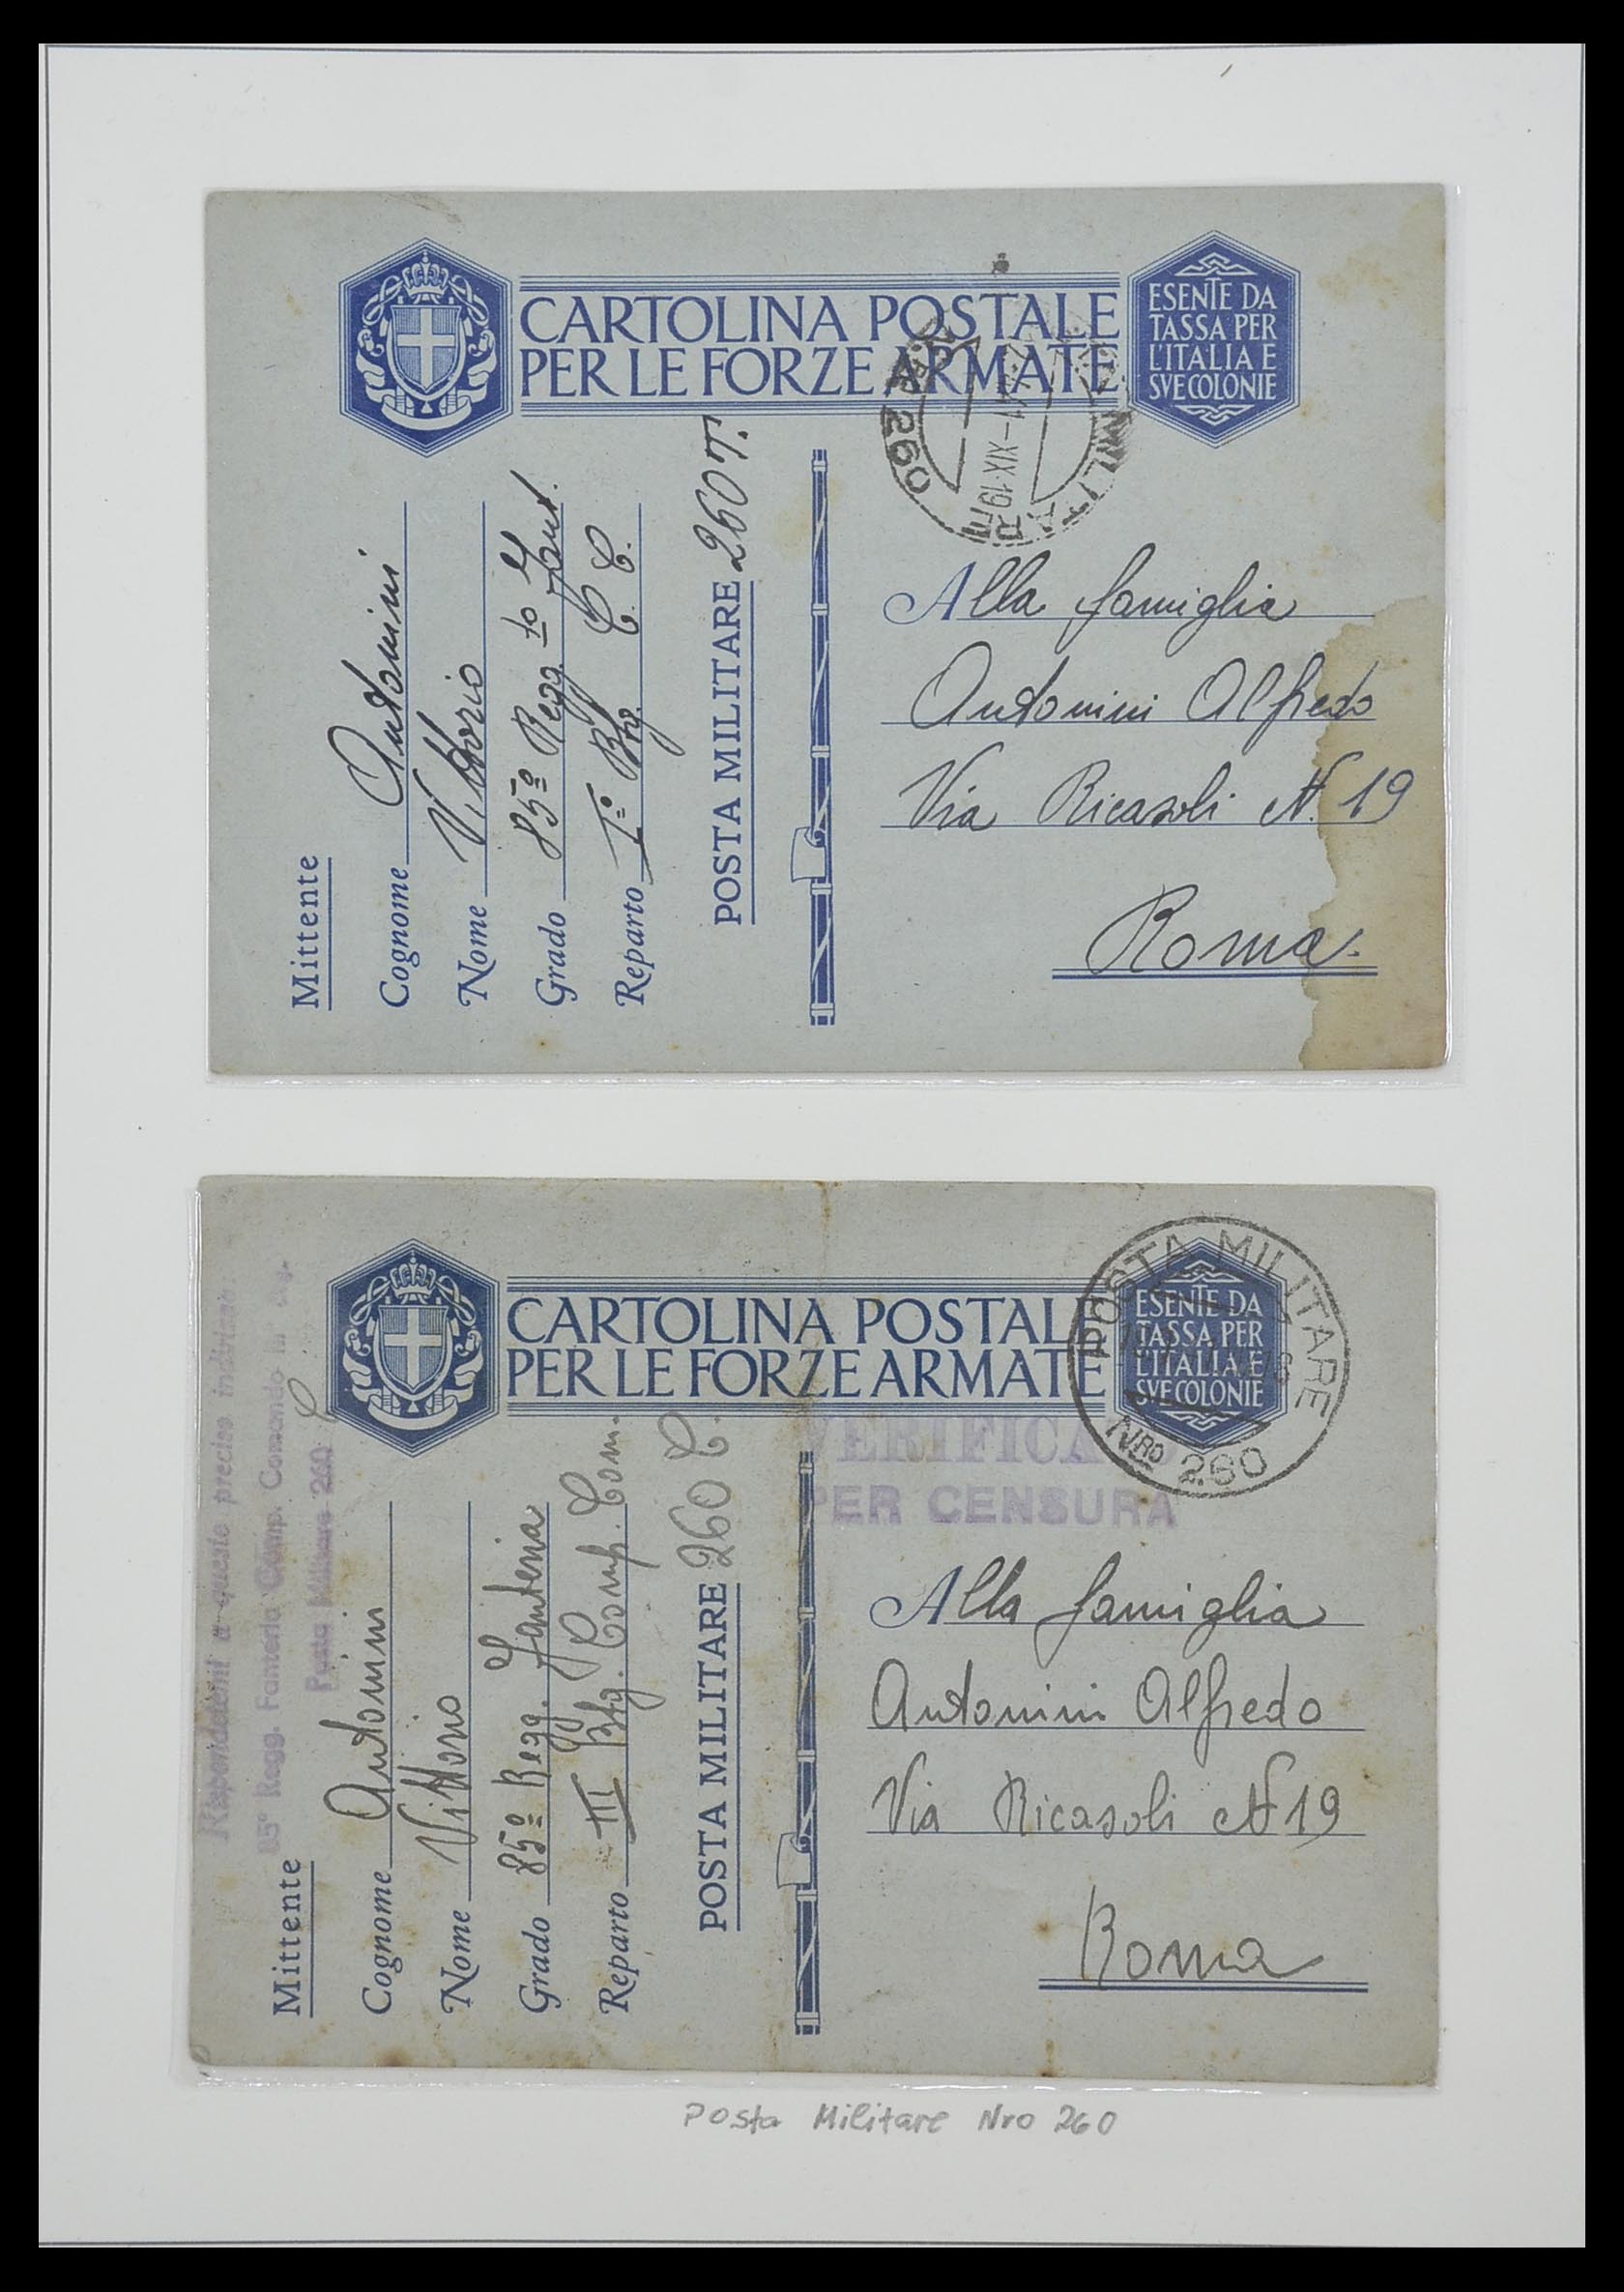 CARTOLINA POSTALE
PER LE FORZE ARMATE
ESENTE DA
TASSA PER
L'ITALIA E
SVE COLONIE
260
XIX·19
Mittente
Cognome Antonini
Nome Vittorio
Grado 85º Regg.to Fant.
Reparto Iº Btg. C. C.
POSTA MILITARE 260 T.
Alla famiglia
Antonini Alfredo
Via Ricasoli N. 19
Roma.
CARTOLINA POSTALE
PER LE FORZE ARMATE
ESENTE DA
TASSA PER
L'ITALIA E
SVE COLONIE
POSTA MILITARE
NRO 260
VERIFICA
PER CENSURA
Rispondetemi a queste preciso indirizzo:
85º Regg. Fanteria Comp. Comando III
Posta Militare 260 C
Mittente
Cognome Antonini
Nome Vittorio
Grado 85º Regg. Fanteria
Reparto III Btg. Comp. Com.
POSTA MILITARE 260 C.
Alla famiglia
Antonini Alfredo
Via Ricasoli N 19
Roma
Posta Militare Nro 260